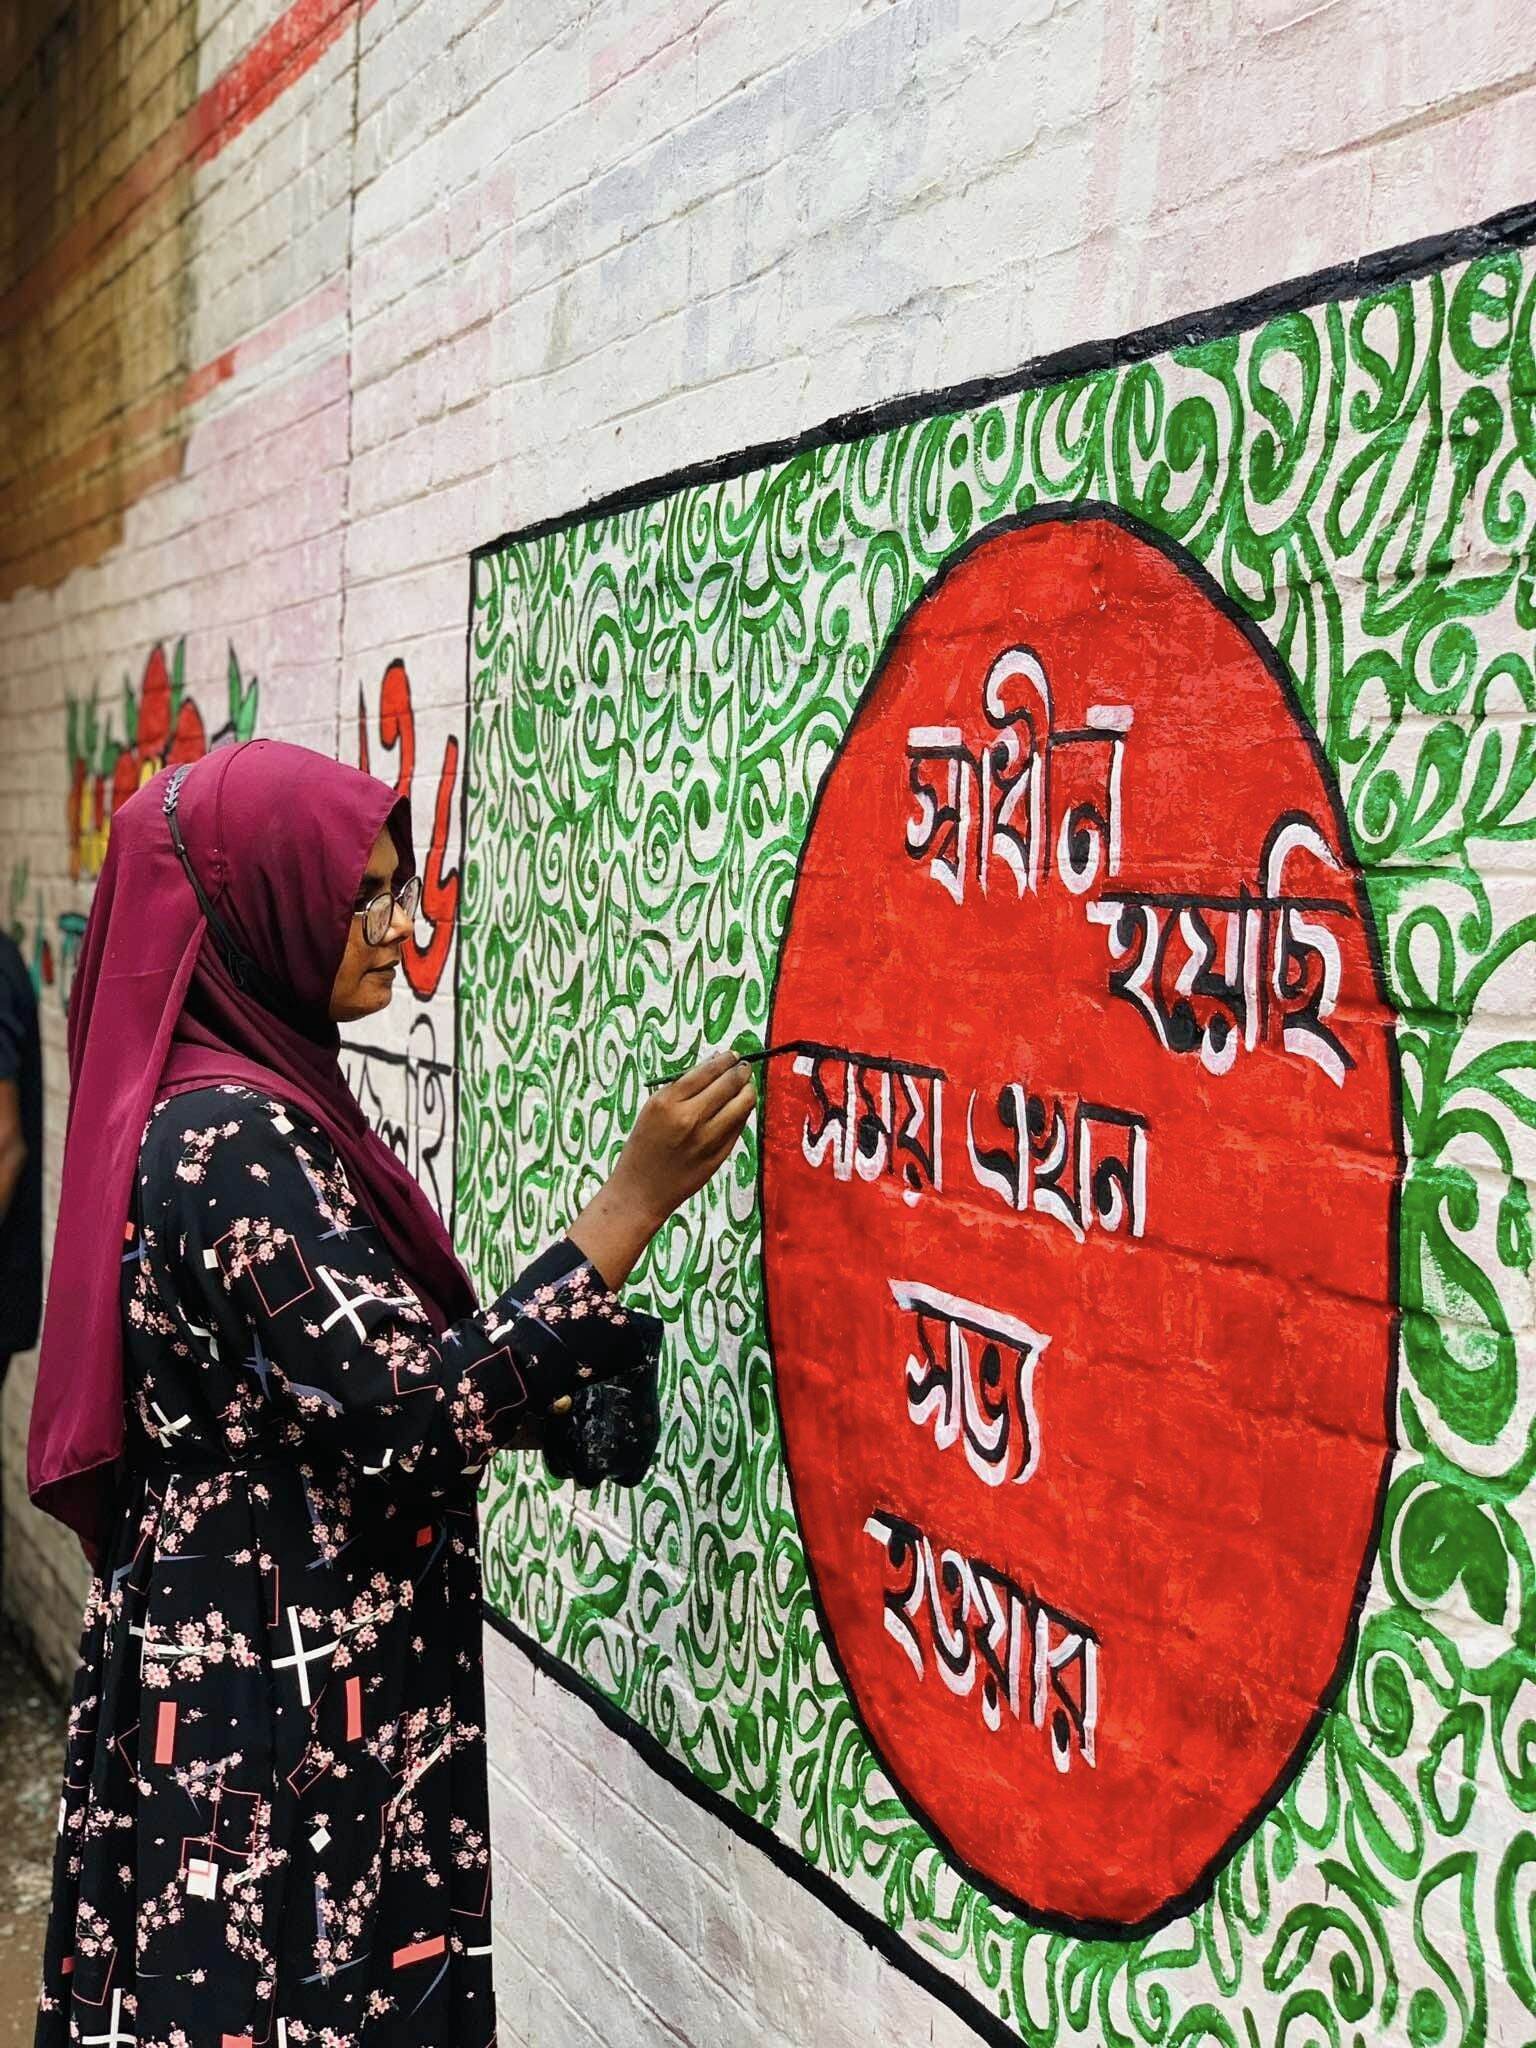 স্বাধীন
হয়েছি
সময় এখন
সভ্য
হওয়ার